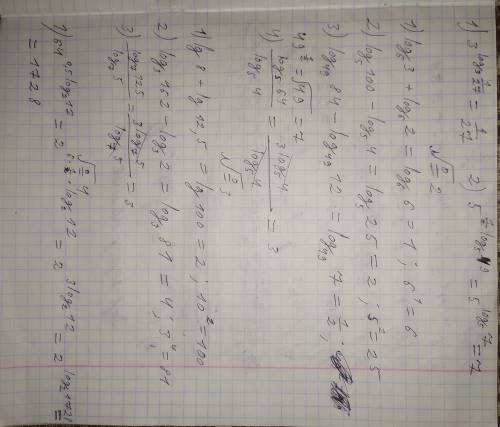 1) 3^{log_3 1/27} = 1/27   2) 5^{1/2 log_5 49} = 5^{log_5 7} = 7
√2 = 2
1) log_6 3 + log_6 2 = log_6 6 = 1; 6^1 = 6
2) log_5 100 - log_5 4 = log_5 25 = 2; 5^2 = 25
3) log_{49} 84 - log_{49} 12 = log_{49} 7 = 1/2;
49^{1/2} = √49 = 7
4) log_5 64 / log_5 4 = 3 log_5 4 / log_5 4 = 3
√2 = 3
1) lg 8 + lg 12,5 = lg 100 = 2; 10^2 = 100
2) log_3 162 - log_3 2 = log_3 81 = 4; 3^4 = 81
3) log_7 125 / log_7 5 = 3 log_7 5 / log_7 5 = 3
1) 64^{0,5 log_2 12} = 2^{6·1/2·log_2 12} = 2^{3 log_2 12} = 2^{log_2 1728} =
= 1728